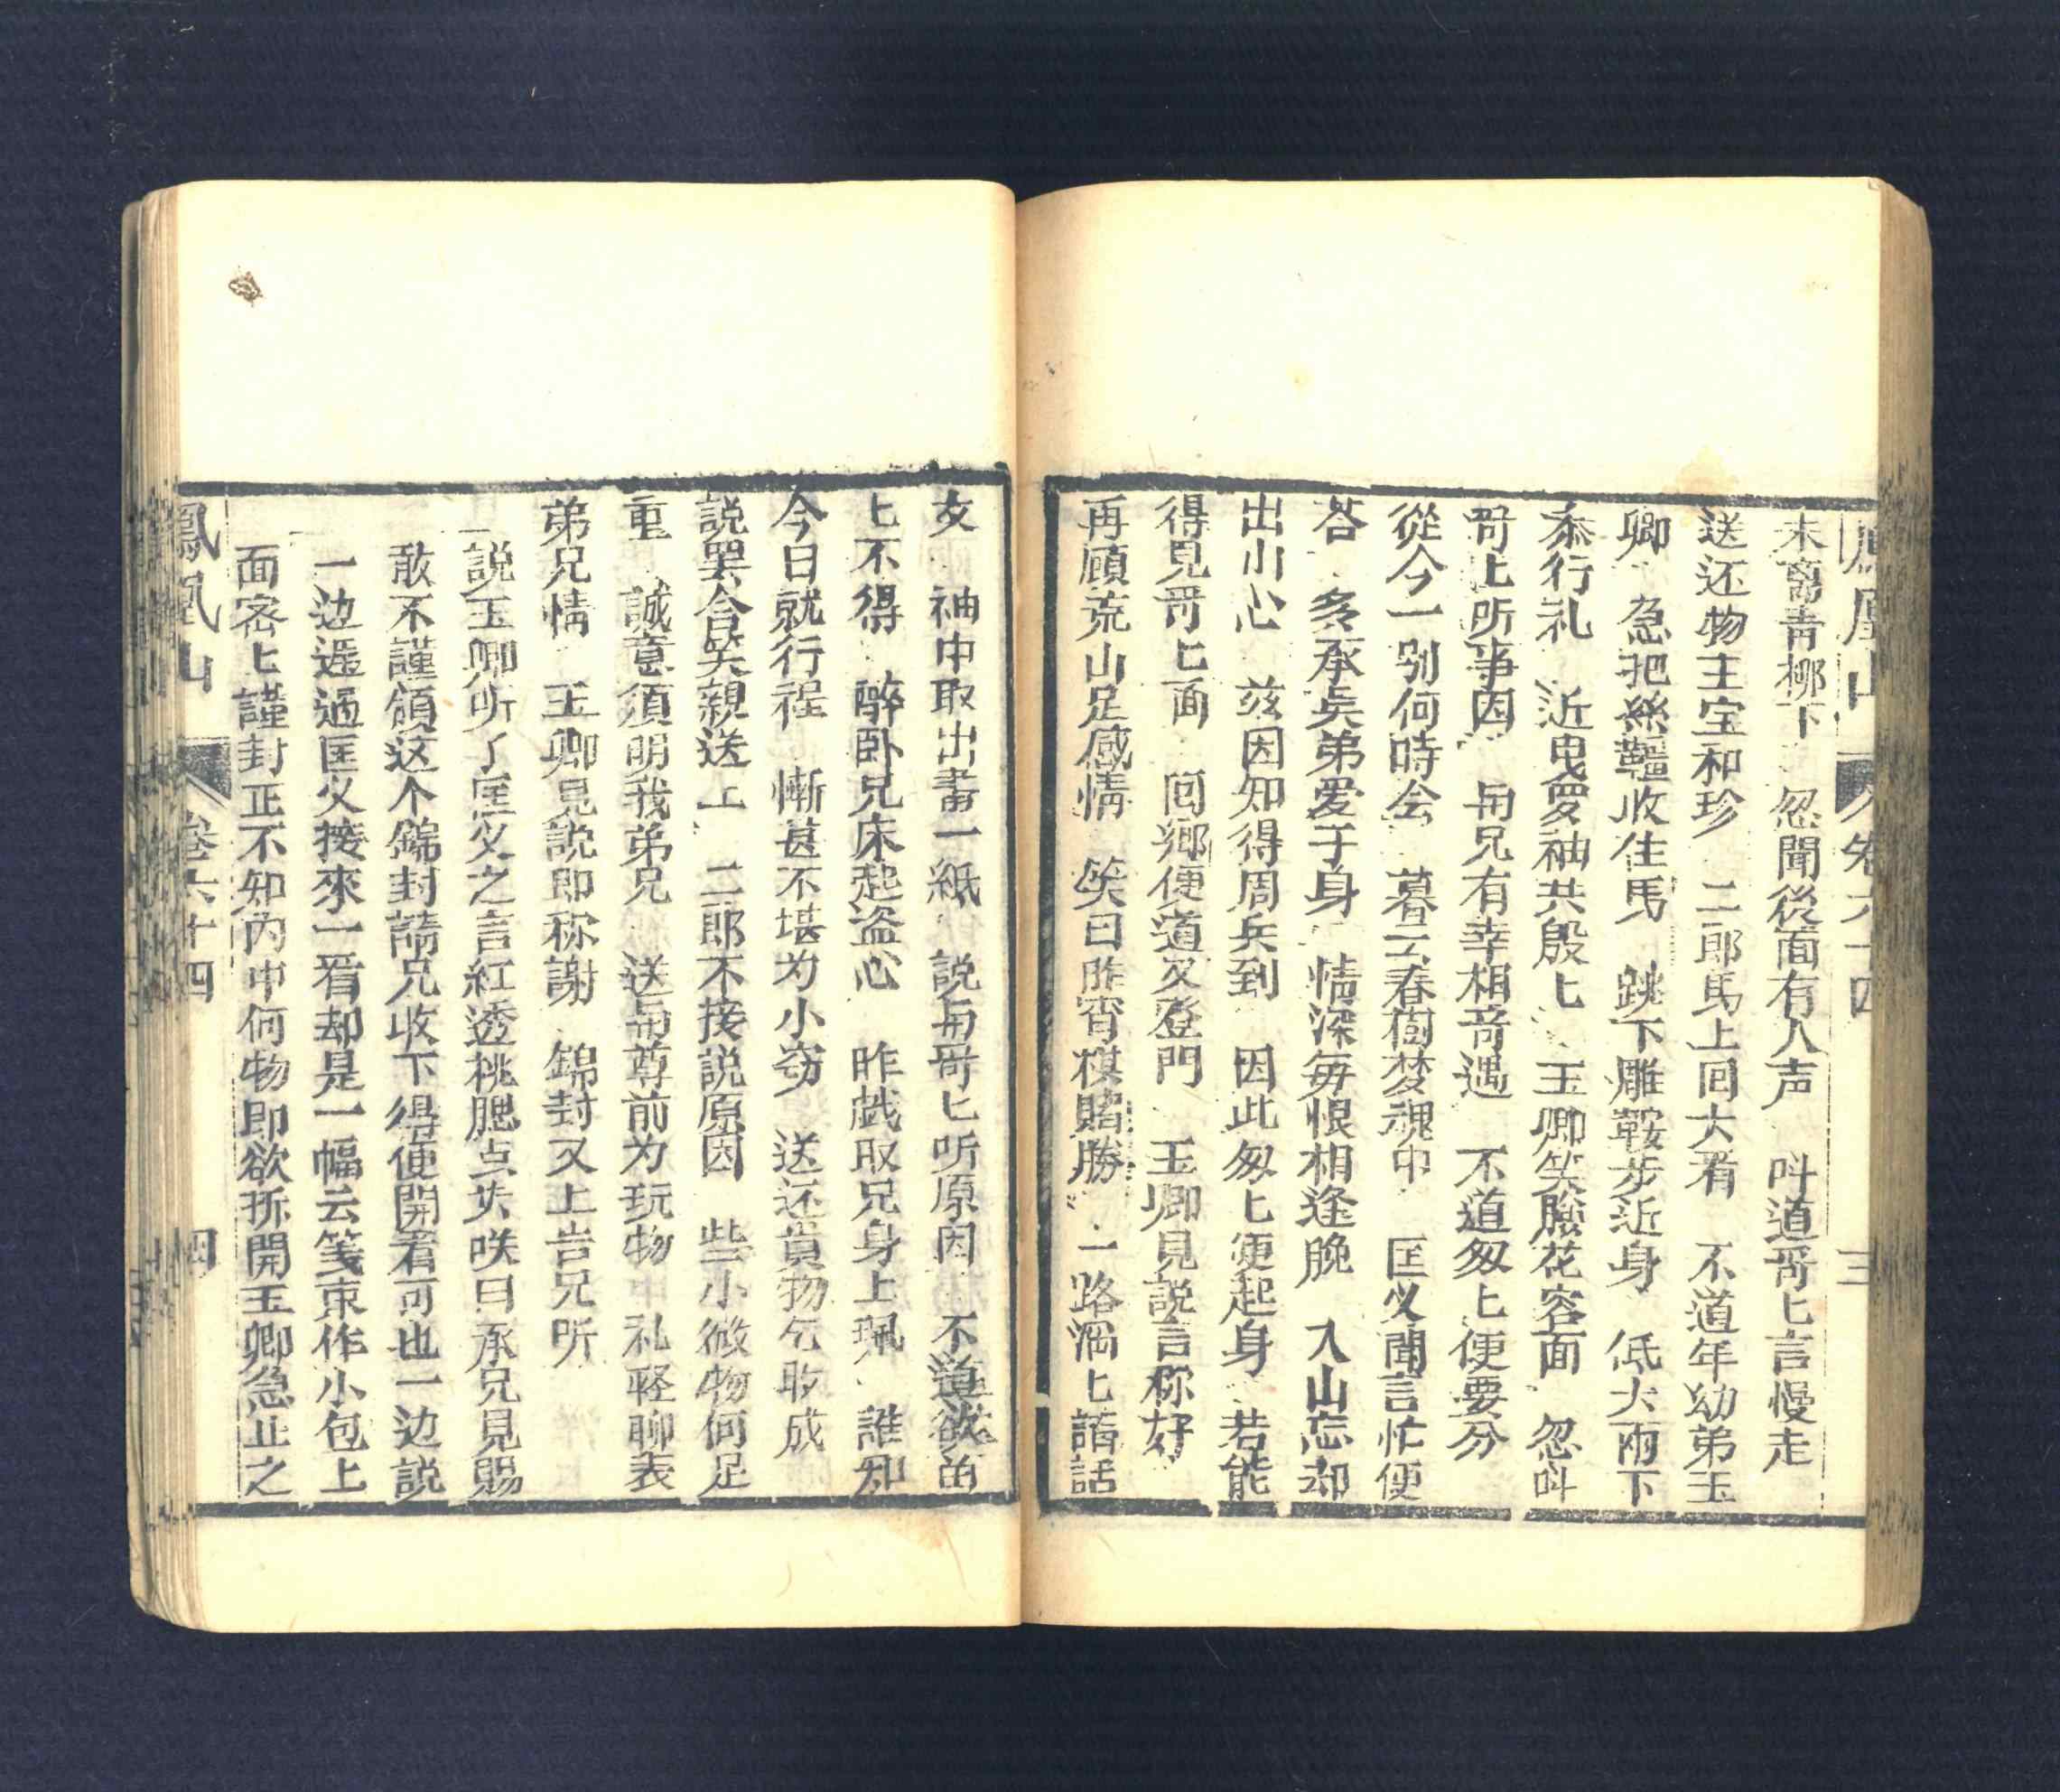 鳳凰山 卷六十四 三
未离青柳下 忽聞後面有人声 叫道哥匕言慢走
送还物主宝和珍 二郎馬上回大看 不道年幼弟玉
卿 急把絲韁收住馬 跳下雕鞍步近身 低大兩下
忝行礼 近曳愛袖共殷匕 玉卿笑臉花容面 忽叫
哥上所事因 与兄有幸相竒遇 不道匆匕便要分
從今一别何時会 暮云春樹梦魂中 匡义聞言忙便
答 多承吳弟爱于身 情深毎恨相逢脫 入山忘却
出山心 兹因知得周兵到 因此匆匕便起身 若能
得見哥匕面 回郷便道又登門 玉卿見説言称好
再顧荒山足感情 笑曰昨宵棋賭勝 一路滔匕諧話
友 袖中取出書一紙 説与哥匕听原因 不道欲留
匕不得 醉卧兄床起盗心 昨戯取兄身上珮 誰知
今日就行程 慚甚不堪为小窃 送还貴物乞收成
説罢含笑親送上 二郎不接説原因 些小微物何足
重 誠意須明我弟兄 送与尊前为玩物 礼軽聊表
弟兄情 玉卿見説即称謝 錦封又上告兄听
説玉卿听了匡义之言紅透桃腮点头咲曰承兄見賜
敢不謹領这个錦封請兄收下得便開看可也一边説
一边遞過匡义接來一看却是一幅云箋束作小包上
面密上謹封正不知内中何物即欲拆開玉卿急止之
鳳凰山 卷六十四 四